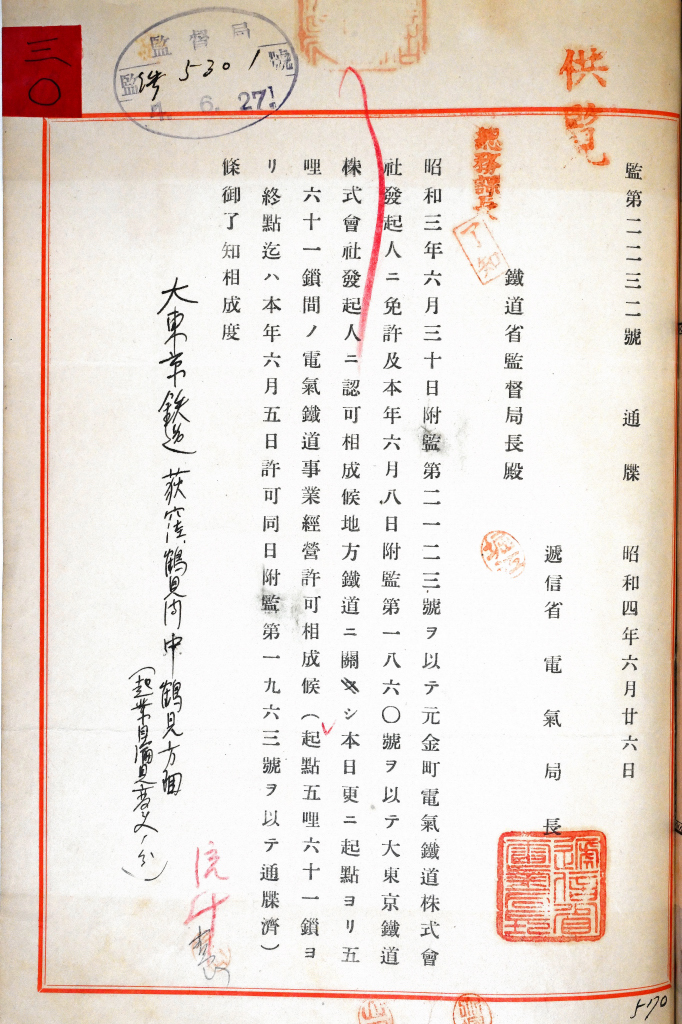 三〇
監督局
監 5301 號
6. 27
供覧
總務課長
了知
監第二二三二號 通牒 昭和四年六月廿六日
遞信省 電氣局長
鐵道省監督局長殿
昭和三年六月三十日附監第二一二三號ヲ以テ元金町電氣鐵道株式會
社發起人ニ免許及本年六月八日附監第一八六〇號ヲ以テ大東京鐵道
株式會社發起人ニ認可相成候地方鐵道ニ關シ本日更ニ起點ヨリ五
哩六十一鎖間ノ電氣鐵道事業經營許可相成候(起點五哩六十一鎖ヨ
リ終點迄ハ本年六月五日許可同日附監第一九六三號ヲ以テ通牒濟)
條御了知相成度
大東京鉄道 荻窪、鶴見間中鶴見方面
5170